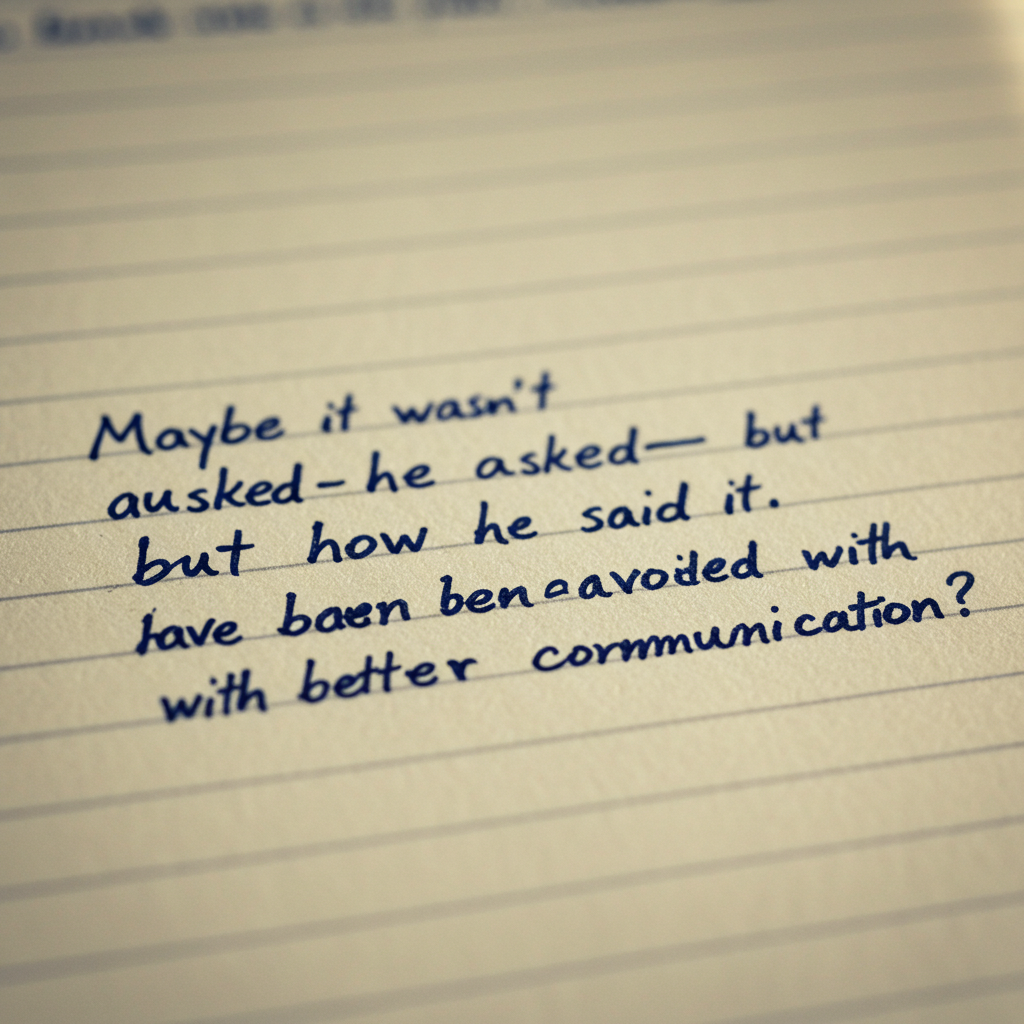 Maybe it wasn't
ausked – he asked — but
but how he said it.
have baen ben avoided with
with better commmunication?